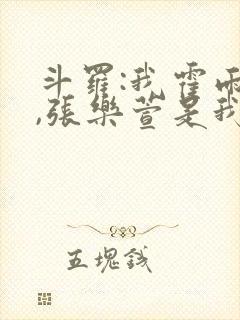 斗羅:我霍雨
,張樂萱是我
五塊錢